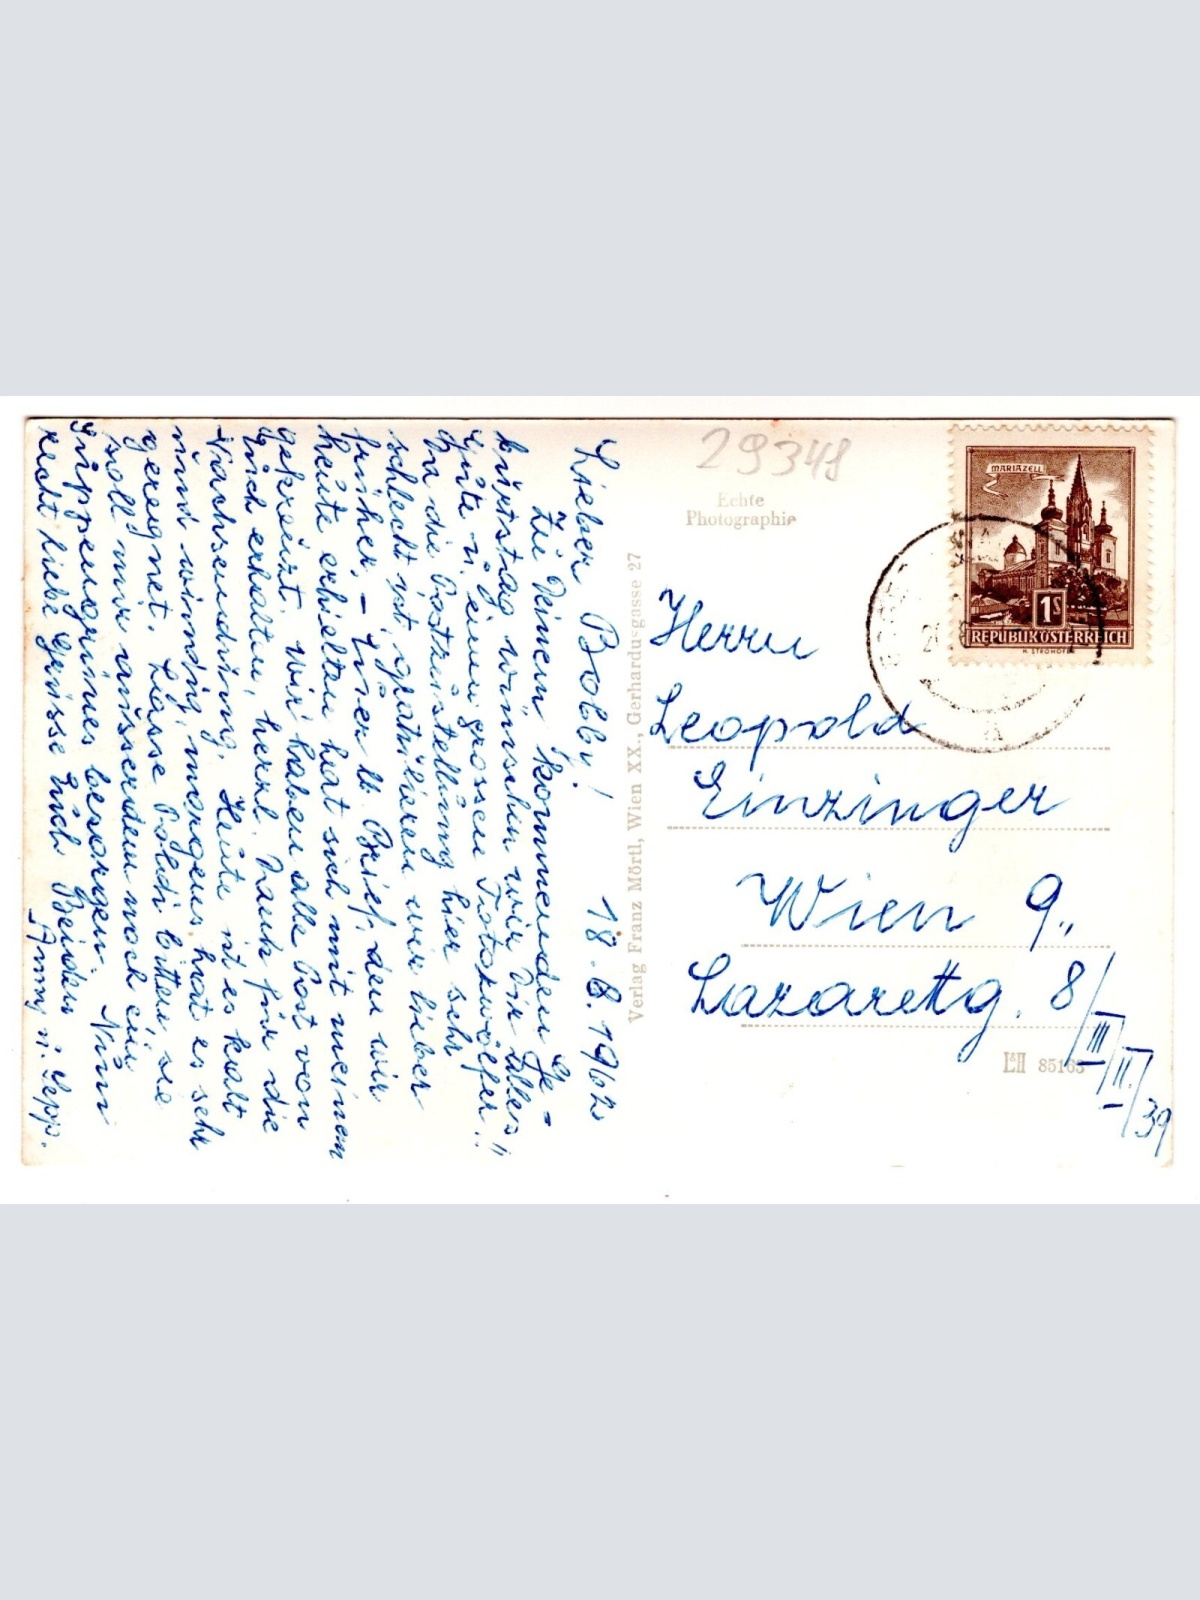 Lieber Bobby! 18.8.1962
Zu Deinem kommenden Ge-
burtstag wünschen wir Dir alles
Gute u. einen grossen Totozwölfer!!
Da die Postzustellung hier sehr
schlecht ist, gratulieren wir lieber
früher. – Euer lb. Brief, den wir
heute erhielten hat sich mit meinem
gekreuzt. Wir haben alle Post von
Euch erhalten, herzl. Dank für die
Nachsendung. Heute ist es kalt
und windig, morgens hat es sehr
geregnet. Lasse Poldi bitten, sie
soll mir ausserdem noch ein
Suppengrünes besorgen. Nun
recht liebe Grüsse Euch Beiden
Anny u. Sepp.
Verlag Franz Mörtl, Wien XX., Gerhardusgasse 27
29348
Echte
Photographie
MARIAZELL
1S
REPUBLIK ÖSTERREICH
H. STROHOFER
Herrn
Leopold
Einzinger
Wien 9.,
Lazarettg. 8/III/II./39
85163